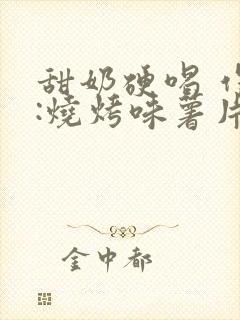 甜奶硬唱
:燒烤味薯片
金中都